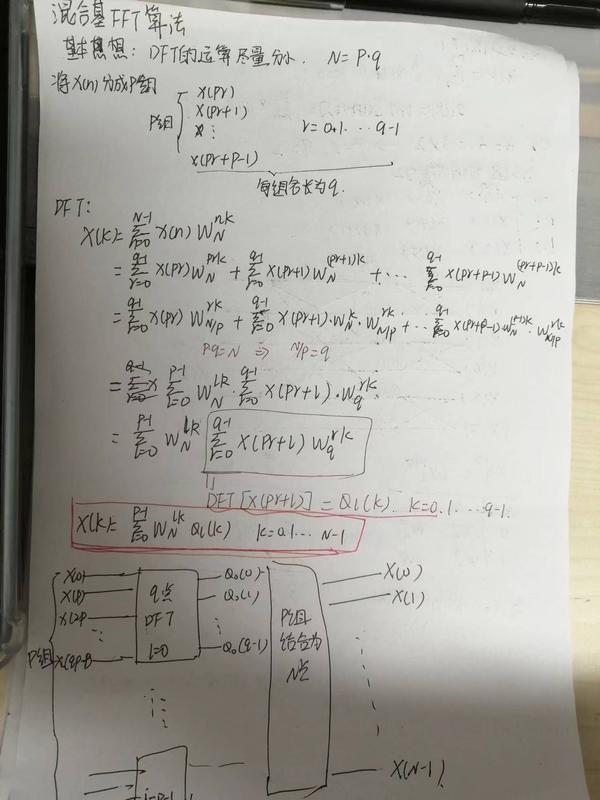 混合基FFT算法
基本思想: DFT的运算尽量分小. N=P·q
将X(n)分成P组
P组 { X(Pr)
X(Pr+1)
⋮ r=0,1...q-1
X(Pr+P-1)
每组各长为q.
DFT:
X(k)= Σ_{r=0}^{N-1} X(n) W_N^{nk}
= Σ_{r=0}^{q-1} X(Pr) W_N^{Prk} + Σ_{r=0}^{q-1} X(Pr+1) W_N^{(Pr+1)k} + ... Σ_{r=0}^{q-1} X(Pr+P-1) W_N^{(Pr+P-1)k}
= Σ_{r=0}^{q-1} X(Pr) W_{N/P}^{rk} + Σ_{r=0}^{q-1} X(Pr+1)·W_N^k·W_{N/P}^{rk} + ... Σ_{r=0}^{q-1} X(Pr+P-1)·W_N^{(P-1)k}·W_{N/P}^{rk}
Pq=N ⇒ N/P=q
= Σ_{l=0}^{P-1} W_N^{lk}·Σ_{r=0}^{q-1} X(Pr+l)·W_q^{rk}
= Σ_{l=0}^{P-1} W_N^{lk} Σ_{r=0}^{q-1} X(Pr+l) W_q^{rk}
||
DFT[X(Pr+l)] = Q_l(k). k=0,1...q-1.
X(k)= Σ_{l=0}^{P-1} W_N^{lk} Q_l(k) k=0,1...N-1
X(0) Q_0(0) X(0)
X(P) q点 Q_0(1) X(1)
X(2P DFT ⋮ P组
⋮ l=0 结合为
P组 Q_0(q-1) N点
X(N-1)
l=P-1